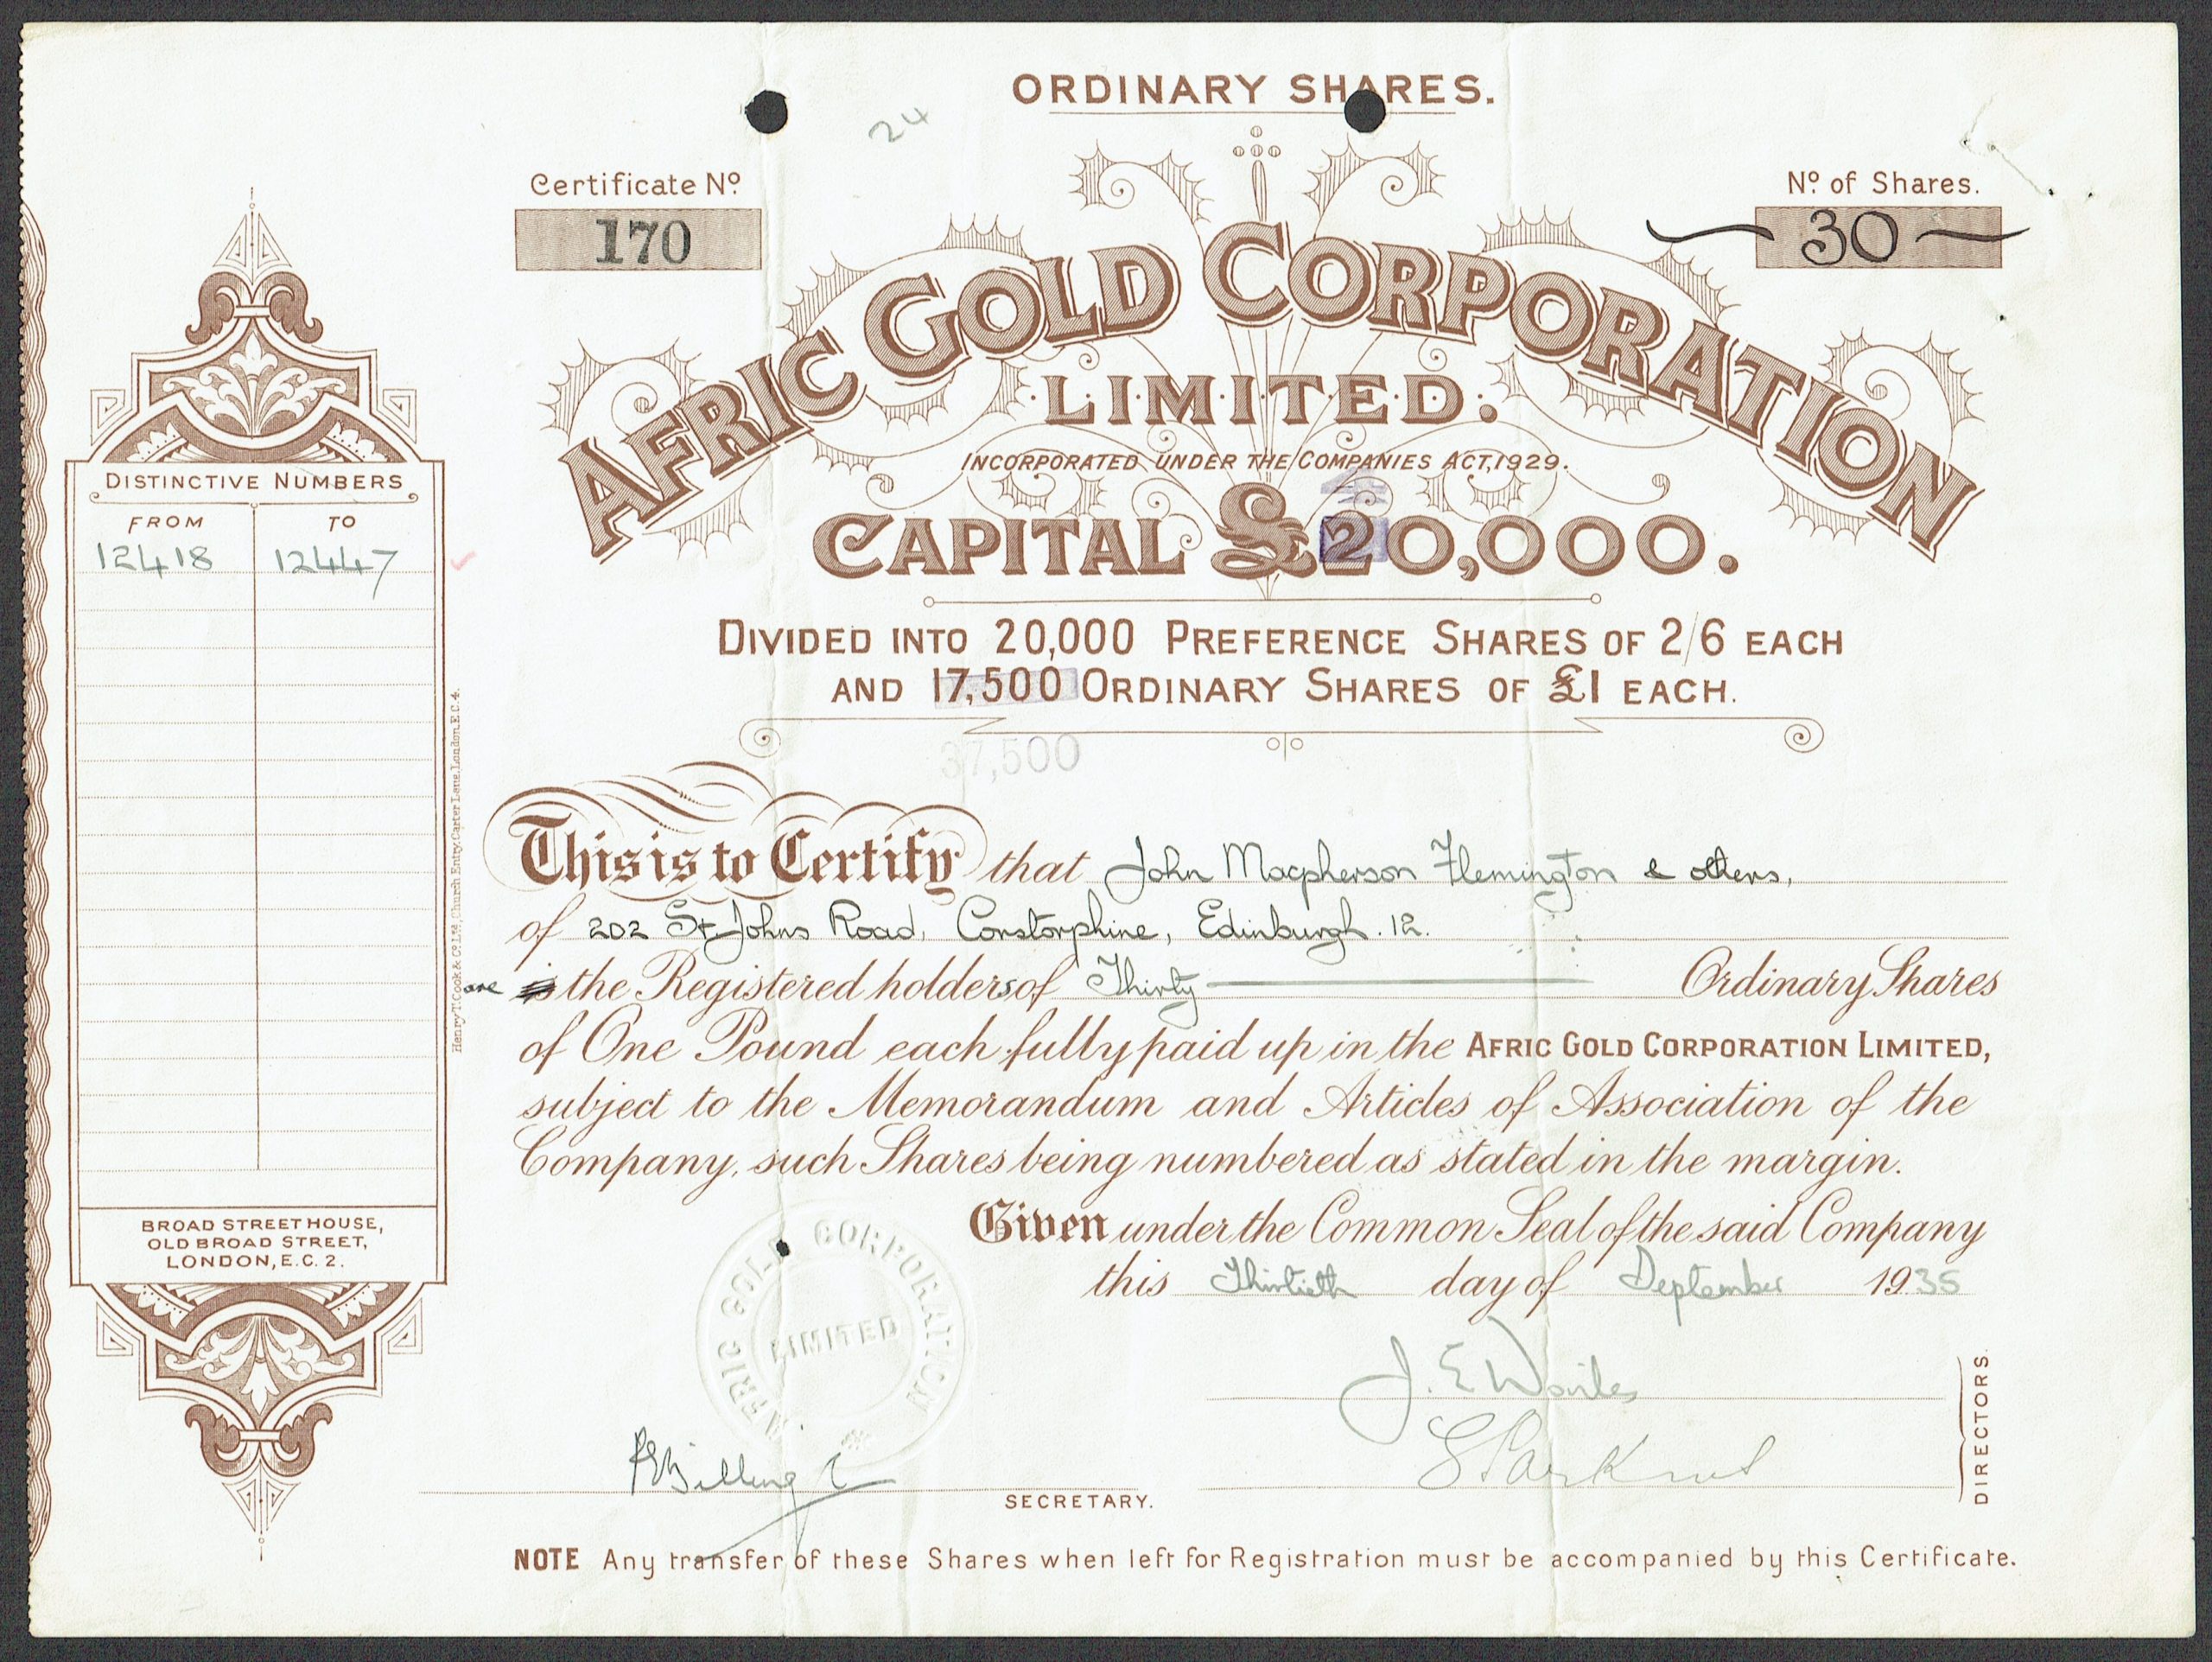 ORDINARY SHARES.
24
Certificate No.
170
No. of Shares.
30
AFRIC GOLD CORPORATION
LIMITED.
INCORPORATED UNDER THE COMPANIES ACT, 1929.
CAPITAL £20,000.
DIVIDED INTO 20,000 PREFERENCE SHARES OF 2/6 EACH
AND 17,500 ORDINARY SHARES OF £1 EACH.
37,500
DISTINCTIVE NUMBERS
FROM TO
12418 12447
Henry T. Cook & Co. Ltd., Church Entry, Carter Lane, London, E.C.4.
This is to Certify that John Macpherson Flemington & others,
of 202 St Johns Road, Corstorphine, Edinburgh. 12.
are is the Registered holders of Thirty Ordinary Shares
of One Pound each fully paid up in the AFRIC GOLD CORPORATION LIMITED,
subject to the Memorandum and Articles of Association of the
Company, such Shares being numbered as stated in the margin.
Given under the Common Seal of the said Company
this Thirtieth day of September 1935
BROAD STREET HOUSE,
OLD BROAD STREET,
LONDON, E.C. 2.
AFRIC GOLD CORPORATION
LIMITED
J. E.
DIRECTORS.
SECRETARY.
NOTE Any transfer of these Shares when left for Registration must be accompanied by this Certificate.